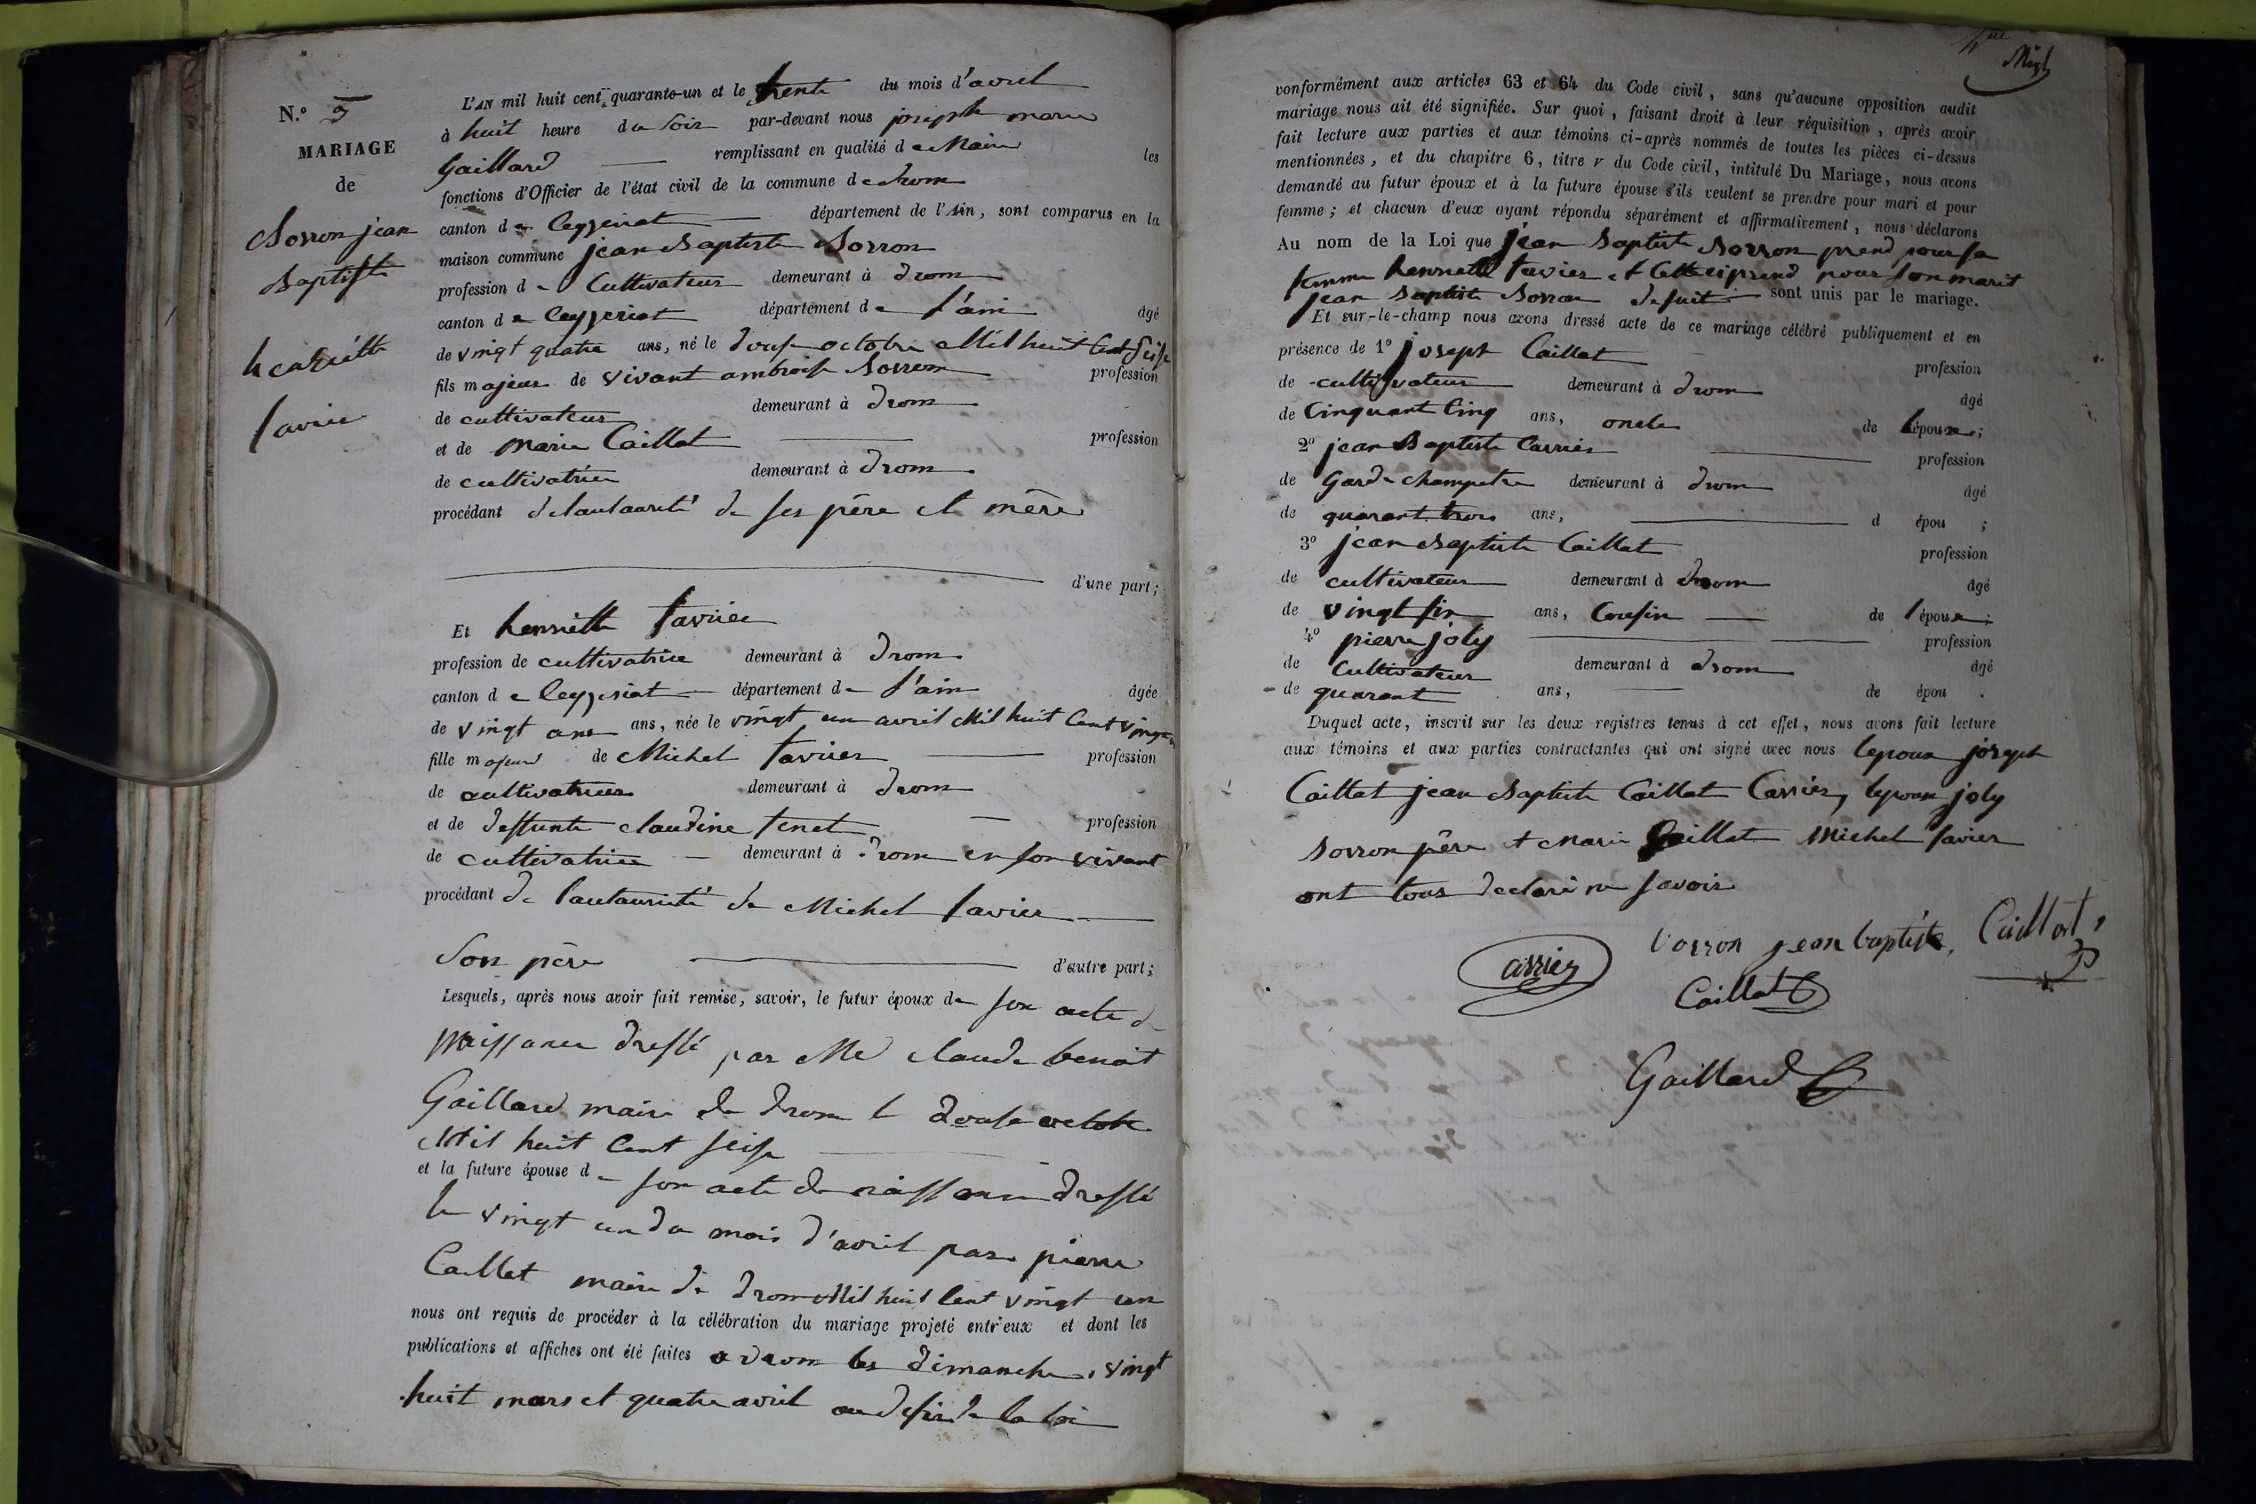 N.º 5
MARIAGE
de
Sorron jean
Baptiste
henriette
favier
L'AN mil huit cent quarante-un et le trente du mois d'avril
à huit heure du soir par-devant nous joseph marie
Gaillard remplissant en qualité de Maire les
fonctions d'Officier de l'état civil de la commune de Drom
canton de Ceyzeriat département de l'Ain, sont comparus en la
maison commune jean Baptiste Sorron
profession de Cultivateur demeurant à Drom
canton de Ceyzeriat département de l'ain âgé
de vingt quatre ans, né le douse octobre Mil huit Cent Seise
fils majeur de vivant ambroise Sorron profession
de cultivateur demeurant à Drom
et de Marie Caillat profession
de cultivatrice demeurant à Drom
procédant de lautaurité de ses père et mère
d'une part;
Et henriette favier
profession de cultivatrice demeurant à Drom
canton de Ceyzeriat département de l'ain âgée
de vingt ans ans, née le vingt un avril Mil huit Cent vingt un
fille majeur de Michel favier profession
de cultivateur demeurant à Drom
et de deffunte claudine tenet profession
de cultivatrice demeurant à Drom en son vivant
procédant de lautaurité de Michel favier
Son père d'autre part;
Lesquels, après nous avoir fait remise, savoir, le futur époux de son acte de
naissance dressé par Me claude benoit
Gaillard maire de Drom le douse octobre
Mil huit Cent Seise
et la future épouse de son acte de naissance dressé
le vingt un du mois d'avril par pierre
Caillat maire de Drom Mil huit Cent vingt un
nous ont requis de procéder à la célébration du mariage projeté entr'eux et dont les
publications et affiches ont été faites a Drom les dimanche vingt
huit mars et quatre avril au desir de la loi
conformément aux articles 63 et 64 du Code civil, sans qu'aucune opposition audit
mariage nous ait été signifiée. Sur quoi, faisant droit à leur réquisition, après avoir
fait lecture aux parties et aux témoins ci-après nommés de toutes les pièces ci-dessus
mentionnées, et du chapitre 6, titre V du Code civil, intitulé Du Mariage, nous avons
demandé au futur époux et à la future épouse s'ils veulent se prendre pour mari et pour
femme; et chacun d'eux ayant répondu séparément et affirmativement, nous déclarons
Au nom de la Loi que jean Baptiste Sorron prend pour sa
femme henriette favier et Cette ci prend pour son marit
jean Baptiste Sorron de suit sont unis par le mariage.
Et sur-le-champ nous avons dressé acte de ce mariage célébré publiquement et en
présence de 1º joseph Caillat profession
de cultivateur demeurant à Drom âgé
de Cinquant Cinq ans, oncle de lépoux;
2º jean Baptiste Carrier profession
de Garde champetre demeurant à Drom âgé
de quarant trois ans, d épou ;
3º jean Baptiste Caillat profession
de cultivateur demeurant à Drom âgé
de vingt six ans, Cousin de l'époux;
4º pierre joly profession
de Cultivateur demeurant à Drom âgé
de quarant ans, de épou .
Duquel acte, inscrit sur les deux registres tenus à cet effet, nous avons fait lecture
aux témoins et aux parties contractantes qui ont signé avec nous lepoux joseph
Caillat jean Baptiste Caillat Carrier, lepouse joly
Sorron père et Marie Caillat Michel favier
ont tous declaré ne savoir
Sorron jean baptiste, Caillat
Carrier
Caillat
Gaillard